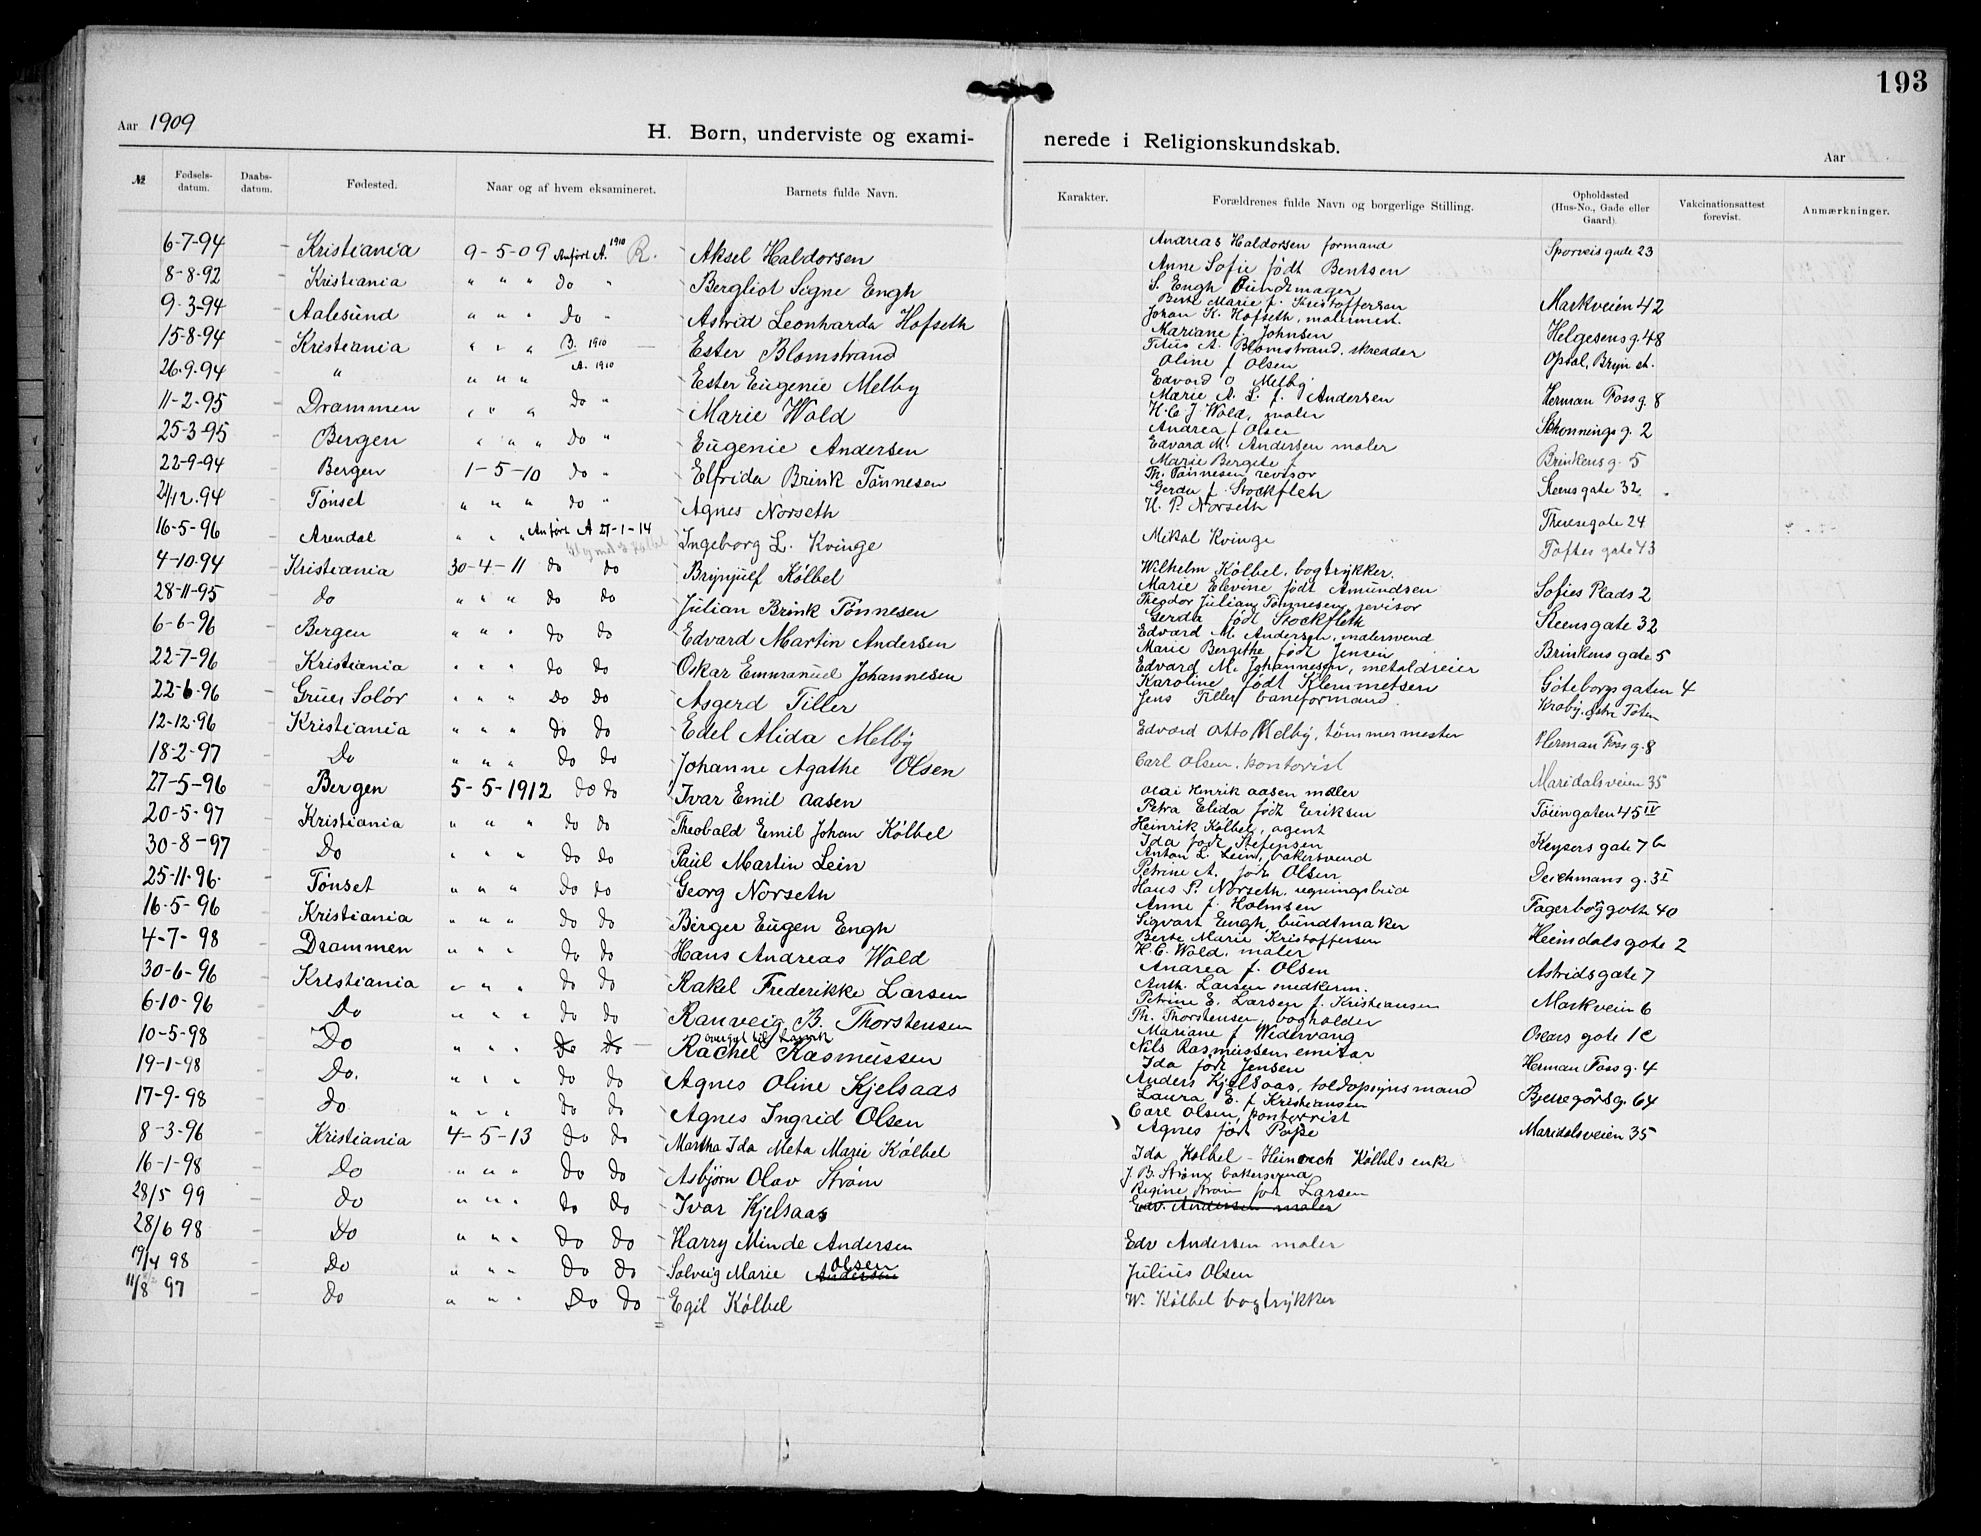 193
Aar 1909
H. Børn, underviste og exami- nerede i Religionskundskab.
Aar
№ Fødsels-datum. Daabs-datum. Fødested. Naar og af hvem eksamineret. Barnets fulde Navn. Karakter. Forældrenes fulde Navn og borgerlige Stilling. Opholdssted (Hus-No., Gade eller Gaard). Vakcinationsattest forevist. Anmærkninger.
6-7-94 – Kristiania 9-5-09 Anført A. 1910 R. Aksel Haldorsen Andreas Haldorsen formand Sporveisgade 23
Anne Sofie født Bentsen
8-8-92 – Kristiania " " " do " Bergliot Signe Engh S. Engh Bundtmager Markveien 42
Berte Marie f. Kristoffersen
9-3-94 – Aalesund " " " Do " Astrid Leonharda Hofseth Johan K. Hofseth, malermest. Helgesensg. 48
Mariane f. Johnsen
15-8-94 – Kristiania " " " B. 1910 Ester Blomstrand Titus A. Blomstrand, skredder Opsal, Bryn st.
Oline f Olsen
26-9-94 – " " " " A. 1910 Ester Eugenie Melby Edvard O Melby Herman Fossg. 8
Marie A. L. f. Andersen
11-2-95 – Drammen " " " do " Marie Wold H. C. J Wold, maler Schønnings g. 2
Andrea f Olsen
25-3-95 – Bergen " " " do " Eugenie Andersen Edvard M. Andersen maler Brinkens g. 5
Marie Bergite f
22-9-94 – Bergen 1-5-10 do " Elfrida Brink Tønnesen Th. Tønnesen revisor Steensgate 32
Gerda f. Stockfleth
21/12-94 – Tønset " " " do " Agnes Norseth H. P. Norseth Theresegate 24
16-5-96 – Arendal " " " Anført A 27-1-14 Ingeborg L. Kvinge Mikal Kvinge Toftes gate 43
4-10-94 – Kristiania 30-4-11 do do Brynjulf Kølbel Wilhelm Kølbel, bogtrykker. Sofies Plads 2
Marie Elevine født Amundsen
28-11-95 – do " " " do do Julian Brink Tønnesen Theodor Julian Tønnesen, revisor Steensgate 32
Gerda født Stockfleth
6-6-96 – Bergen " " " do do Edvard Martin Andersen Edvard M. Andersen, malersvend Brinkens gate 5
Marie Bergithe født Jensen
22-7-96 – Kristiania " " " do do Oskar Emmanuel Johannesen Edvard M. Johannesen, metaldreier Göteborggaten 4
Karoline født Klemmetsen
22-6-96 – Grue, Solör " " " do do Asgerd Tiller Jens Tiller baneformand Kraby, østre Toten
12-12-96 – Kristiania " " " do do Edel Alida Melby Edvard Otto Melby, tømmermester Herman Foss g. 8
18-2-97 – Do " " " do do Johanne Agathe Olsen Carl Olsen, kontorist Maridalsveien 35
27-5-96 – Bergen 5-5-1912 do do Ivar Emil Aasen Olai Henrik Aasen maler Töiengaten 45 IV
Petra Elida født Eriksen
20-5-97 – Kristiania " " " do do Theobald Emil Johan Kölbel Heinrik Kölbel, agent Keysers gate 7 b
Ida født Steffensen
30-8-97 – Do " " " do do Paul Martin Lein Anton L. Lein, bakersvend Deichmans g. 3 I
Petrine A. født Olsen
25-11-96 – Tønset " " " do do Georg Norseth Hans P. Norseth, regningsbud Fagerborggate 40
Anne f. Holmsen
16-5-96 – Kristiania " " " do do Birger Eugen Engh Sigvart Engh bundtmaker Heimdalsgate 2
Berte Marie Kristoffersen
4-7-98 – Drammen " " " do do Hans Andreas Wold H. C. Wold, maler Astridsgate 7
Andrea f. Olsen
30-6-96 – Kristiania " " " do do Rakel Frederikke Larsen Anth. Larsen snedkerm. Markvein 6
Petrine E. Larsen f. Kristiansen
6-10-96 – Do " " " do do Ranveig B. Thorstensen Th. Thorstensen, bogholder Oscars gate 1c
Mariane f Widervang
10-5-98 – Do " " " do do Rachel Rasmussen Nils Rasmussen, emitar Herman Foss g. 4
Ida født Jensen
19-1-98 – Do. " " " do do Agnes Oline Kjelsaas Anders Kjelsaas, toldopsynsmand Bjerregårdsg. 64
Laura E. f Kristiansen
17-9-98 – Do " " " do do Agnes Ingrid Olsen Carl Olsen, kontorist Maridalsveien 35
Agnes født Pape
8-3-96 – Kristiania 4-5-13 do do Martha Ida Meta Marie Kölbel Ida Kölbel – Heinrich Kölbels enke
16-1-98 – Do " " " do do Asbjørn Olav Strøm J. B. Strøm bakersvend
Regine Strøm født Larsen
28/5 99 – do " " " do do Ivar Kjelsaas Edv. Andersen maler
28/6 98 – do " " " do do Harry Minde Andersen Edv Andersen maler
19/4 98 – Do " " " do do Solveig Marie Andersen Olsen Julius Olsen
11/8 97 – do " " " do do Egil Kölbel W. Kölbel bogtrykker